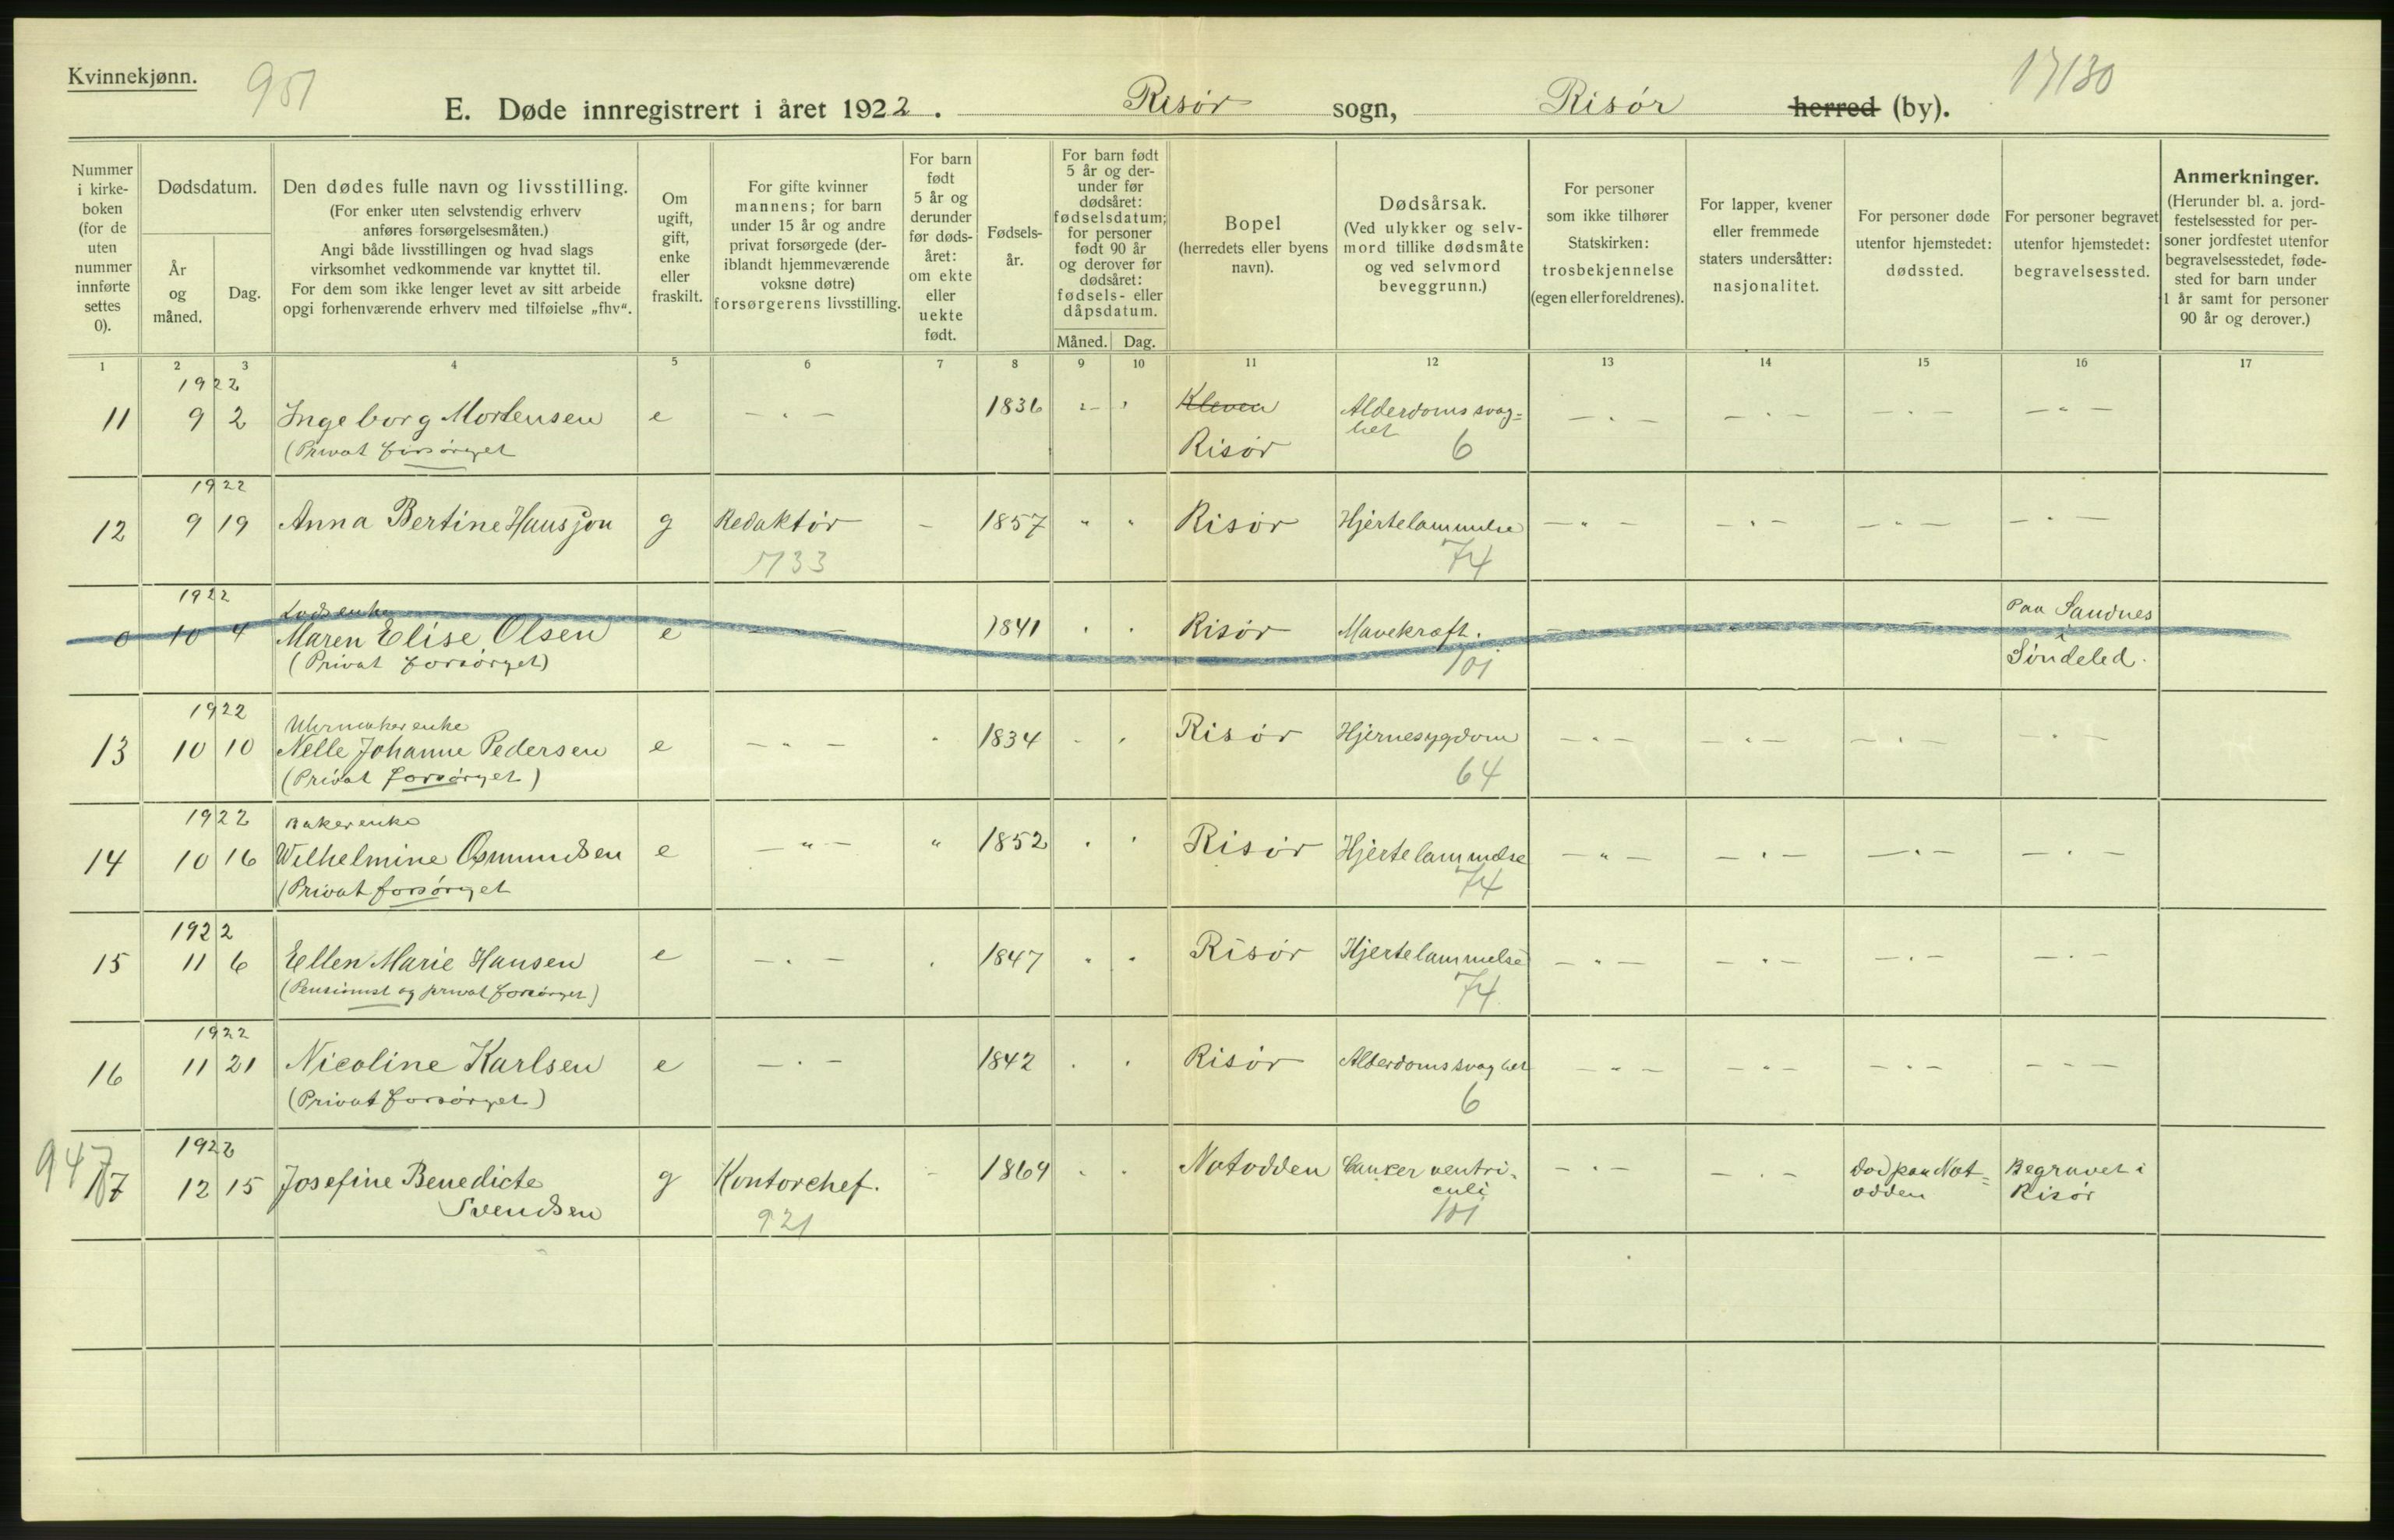 Kvinnekjønn.
951
17130
E. Døde innregistrert i året 1922. Risør sogn, Risør herred (by).
Nummer i kirke-boken (for de uten nummer innførte settes 0).
Dødsdatum.
År og måned.
Dag.
Den dødes fulle navn og livsstilling.
(For enker uten selvstendig erhverv anføres forsørgelsesmåten.)
Angi både livsstillingen og hvad slags virksomhet vedkommende var knyttet til.
For dem som ikke lenger levet av sitt arbeide opgi forhenværende erhverv med tilføielse „fhv“.
Om ugift, gift, enke eller fraskilt.
For gifte kvinner mannens; for barn under 15 år og andre privat forsørgede (der-iblandt hjemmeværende voksne døtre) forsørgerens livsstilling.
For barn født 5 år og derunder før døds-året: om ekte eller uekte født.
Fødsels-år.
For barn født 5 år og der-under før dødsåret: fødselsdatum; for personer født 90 år og derover før dødsåret: fødsels- eller dåpsdatum.
Måned. Dag.
Bopel
(herredets eller byens navn).
Dødsårsak.
(Ved ulykker og selv-mord tillike dødsmåte og ved selvmord beveggrunn.)
For personer som ikke tilhører Statskirken: trosbekjennelse (egen eller foreldrenes).
For lapper, kvener eller fremmede staters undersåtter: nasjonalitet.
For personer døde utenfor hjemstedet: dødssted.
For personer begravet utenfor hjemstedet: begravelsessted.
Anmerkninger.
(Herunder bl. a. jord-festelsessted for per-soner jordfestet utenfor begravelsesstedet, føde-sted for barn under 1 år samt for personer 90 år og derover.)
1 2 3 4 5 6 7 8 9 10 11 12 13 14 15 16 17
1922
11 9 2 Ingeborg Mortensen e — " — 1836 Kleven Alderdomssvag=
het
(Privat forsørget Risør 6
1922
12 9 19 Anna Bertine Hansson g Redaktør — 1857 " " Risør Hjertelammelse
1733 74
1922
Lodsenke
Paa Sandnes
0 10 4 Maren Elise Olsen e 1841 Risør Mavekræft.
i
(Privat forsørget) 101 Søndeled.
1922
Uhrmakerenke
13 10 10 Nelle Johanne Pedersen e — " — 1834 Risør Hjernesygdom
(Privat forsørget) 64
1922
Bakerenke
14 10 16 Wilhelmine Osmundsen e — " — " 1852 Risør Hjertelammelse
(Privat forsørget 74
1922
15 11 6 Ellen Marie Hansen e — " — 1847 Risør Hjertelammelse
(Pensionist og privat forsørget) 74
1922
16 11 21 Nicoline Karlsen e — " — 1842 Risør Alderdomssvaghet
(Privat forsørget) 6
947
1922
17 12 15 Josefine Benedicte g Kontorchef. 1869 Notodden Canser ventri=
culi
Død paa Not=
odden
Begravet i
Risør
Svendsen 921 101